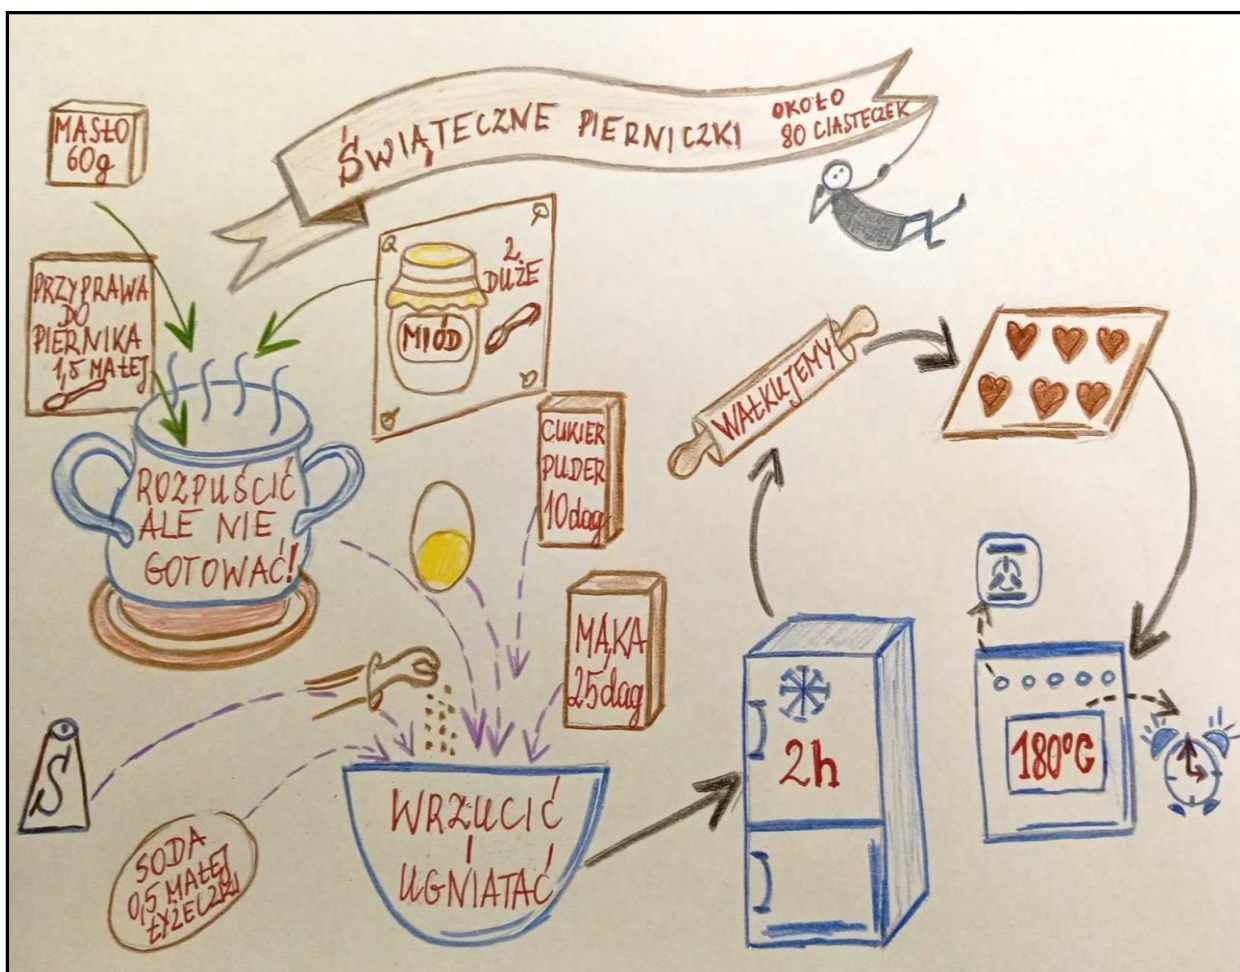 ŚWIĄTECZNE PIERNICZKI
OKOŁO
80 CIASTECZEK
MASŁO
60g
PRZYPRAWA
DO
PIERNIKA
1,5 MAŁEJ
2
DUŻE
MIÓD
ROZPUŚCIĆ
ALE NIE
GOTOWAĆ!
CUKIER
PUDER
10dag
MĄKA
25dag
S
SODA
0,5 MAŁEJ
ŁYŻECZKI
WRZUCIĆ
I
UGNIATAĆ
2h
WAŁKUJEMY
180°C